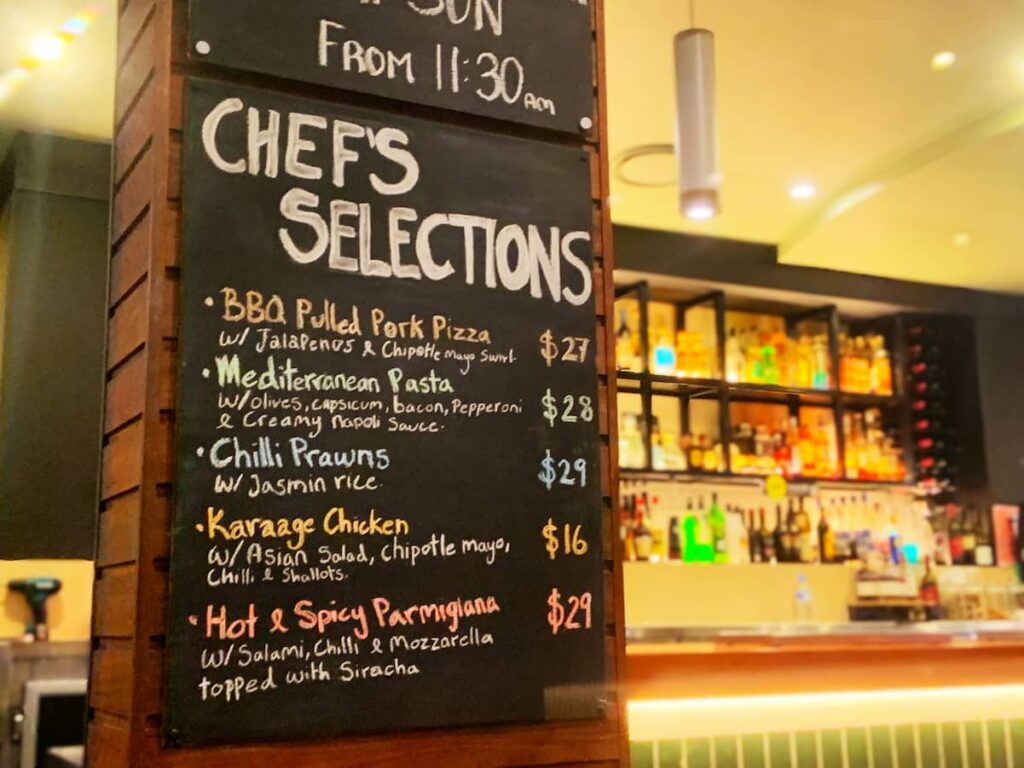 SUN
FROM 11:30AM
CHEF'S
SELECTIONS
• BBQ Pulled Pork Pizza $27
w/ Jalapenos & Chipotle mayo Swirl.
• Mediterranean Pasta $28
w/olives, capsicum, bacon, Pepperoni
& Creamy napoli Sauce.
• Chilli Prawns $29
w/ Jasmin rice.
• Karaage Chicken $16
w/ Asian Salad, chipotle mayo,
chilli & shallots.
• Hot & Spicy Parmigiana $29
w/ Salami, Chilli & Mozzarella
topped with Siracha